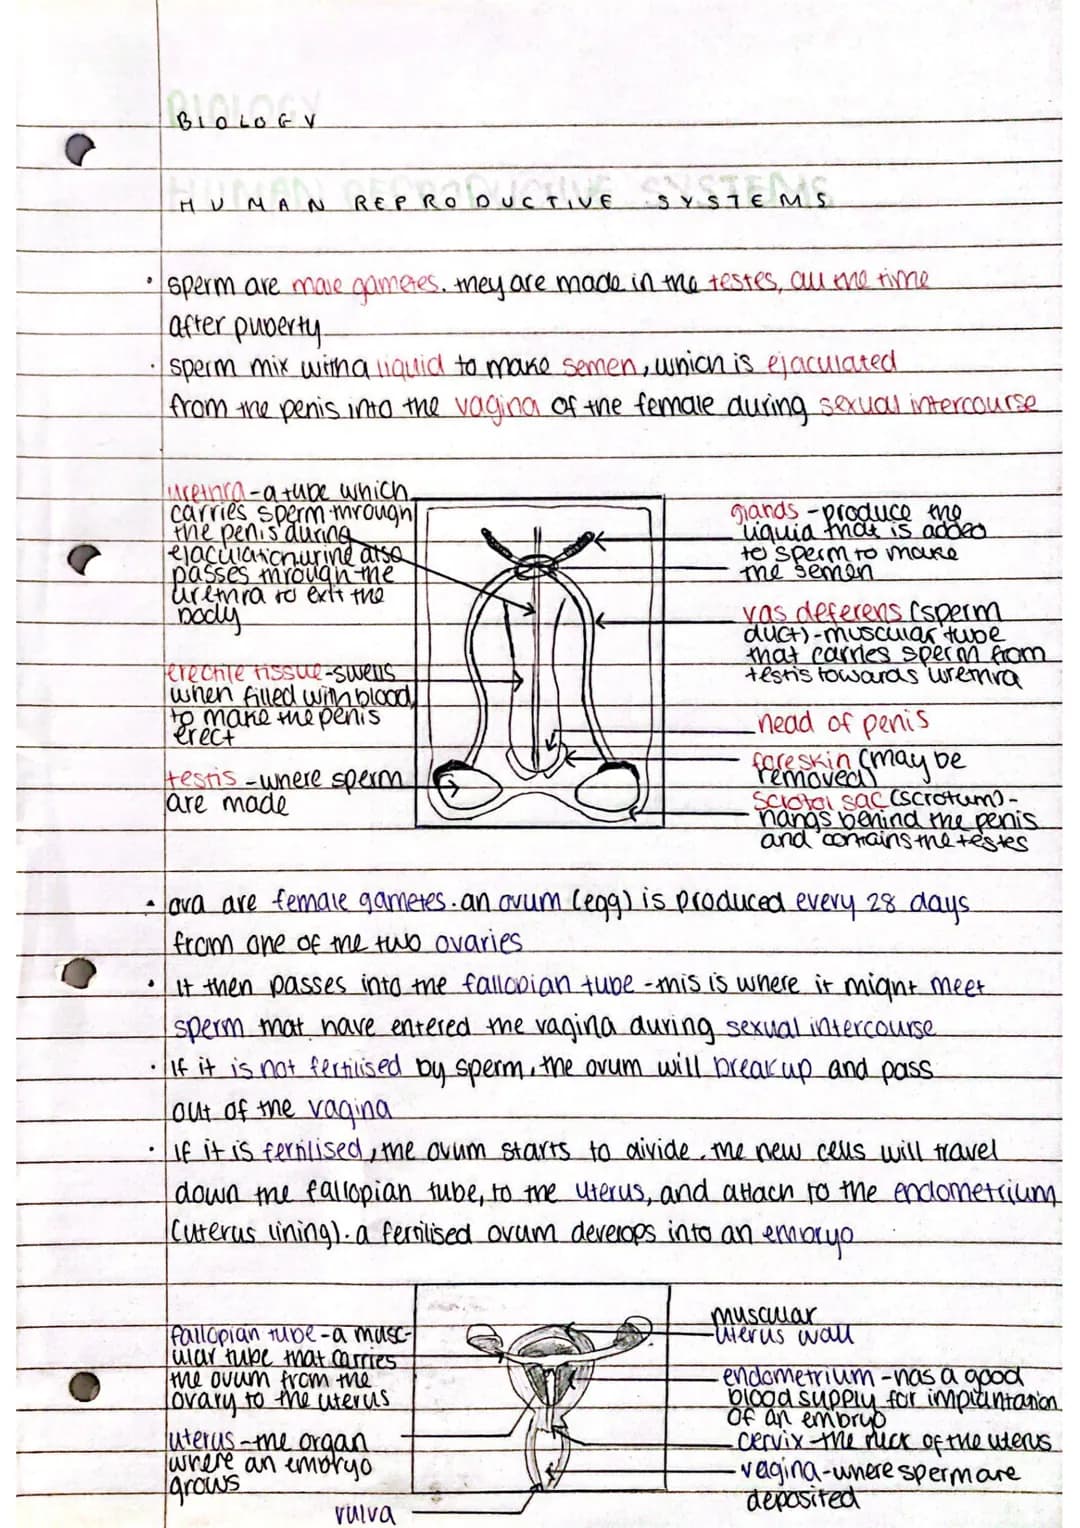 BIOLOGY
HUMAN REPRODUCTIVE SYSTEMS
• sperm are male gametes. they are made in the testes, all the time
after puberty
• sperm mix with a liquid to make semen, which is ejaculated
from the penis into the vagina of the female during sexual intercourse
urethra - a tube which
carries sperm through
the penis during
ejaculation. urine also
passes through the
urethra to exit the
body
erectile tissue - swells
when filled with blood
to make the penis
erect
testis - where sperm
are made
glands - produce the
liquid that is added
to sperm to make
the semen
vas deferens (sperm
duct) - muscular tube
that carries sperm from
testis towards urethra
head of penis
foreskin (may be
removed)
scrotal sac (scrotum) -
hangs behind the penis
and contains the testes
• ova are female gametes. an ovum (egg) is produced every 28 days
from one of the two ovaries
• it then passes into the fallopian tube - this is where it might meet
sperm that have entered the vagina during sexual intercourse
• if it is not fertilised by sperm, the ovum will break up and pass
out of the vagina
• if it is fertilised, the ovum starts to divide. the new cells will travel
down the fallopian tube, to the uterus, and attach to the endometrium
(uterus lining). a fertilised ovum develops into an embryo
fallopian tube - a musc-
ular tube that carries
the ovum from the
ovary to the uterus
uterus - the organ
where an embryo
grows
vulva
muscular
uterus wall
endometrium - has a good
blood supply for implantation
of an embryo
cervix - the neck of the uterus
vagina - where sperm are
deposited